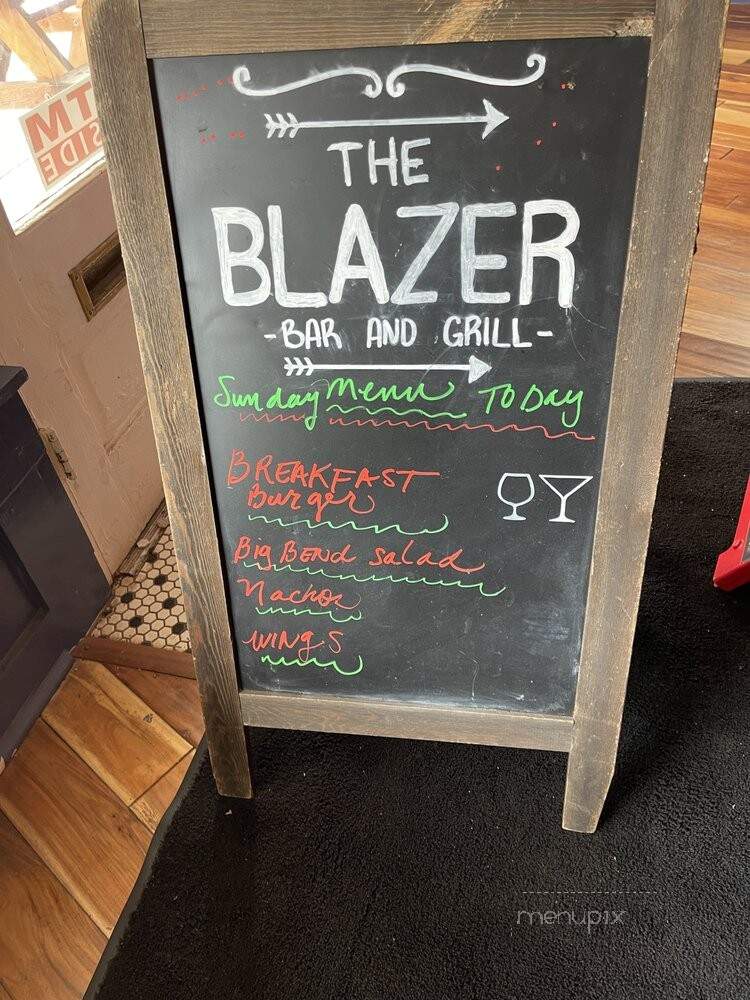 THE
BLAZER
-BAR AND GRILL-
Sunday Menu TODay
BREAKFAST
Burger
Big BEnd salad
Nachos
WINgS
MT
SIDE
menupix